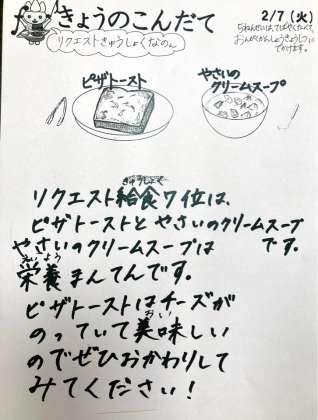 きょうのこんだて
2/7(火)
リクエストきゅうしょくなのん
5ねんせいは、てばやくたべて、
おんがくかんしょうきょうしつに
でかけます。
ピザトースト
やさいの
クリームスープ
きゅうしょく
リクエスト給食7位は、
ピザトーストと やさいのクリームスープ
です。
やさいのクリームスープは
えいよう
栄養まんてんです。
ピザトーストはチーズが
おい
のっていて美味しい
のでぜひおかわりして
みてください!